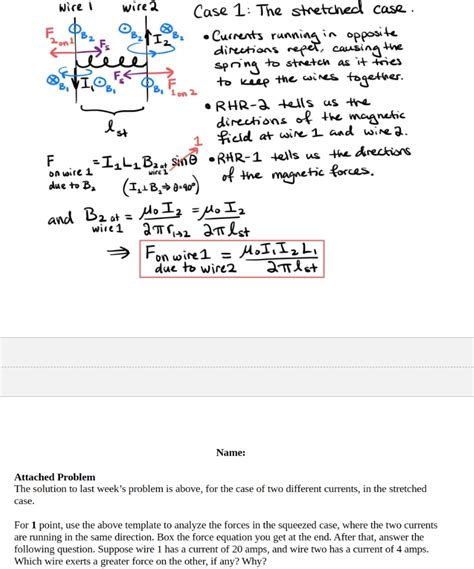 wire 1 wire 2 Case 1: The stretched case.
F 2 on 1 B₂ B₂ I₂
Fs
Fs
B₁ I₁ B₁ B₁ F 1 on 2
ℓst
• Currents running in opposite
directions repel, causing the
spring to stretch as it tries
to keep the wires together.
• RHR-2 tells us the
directions of the magnetic
field at wire 1 and wire 2.
• RHR-1 tells us the directions
of the magnetic forces.
F on wire 1 due to B₂ = I₁L₁B₂ at wire 1 sinθ 1
(I₁⊥B₂⇒θ=90°)
and B₂ at wire 1 = μ₀I₂/2πr₁→₂ = μ₀I₂/2πℓst
⇒ F on wire 1 due to wire 2 = μ₀I₁I₂L₁/2πℓst
Name:
Attached Problem
The solution to last week's problem is above, for the case of two different currents, in the stretched
case.
For 1 point, use the above template to analyze the forces in the squeezed case, where the two currents
are running in the same direction. Box the force equation you get at the end. After that, answer the
following question. Suppose wire 1 has a current of 20 amps, and wire two has a current of 4 amps.
Which wire exerts a greater force on the other, if any? Why?